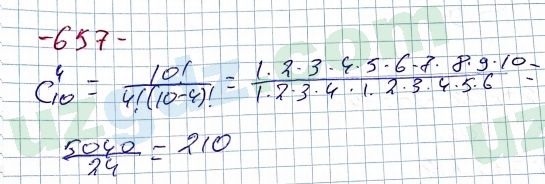 -657-
C₁₀⁴ = 10! / 4!(10-4)! = 1·2·3·4·5·6·8·8·9·10 / 1·2·3·4·1·2·3·4·5·6 =
5040 / 24 = 210